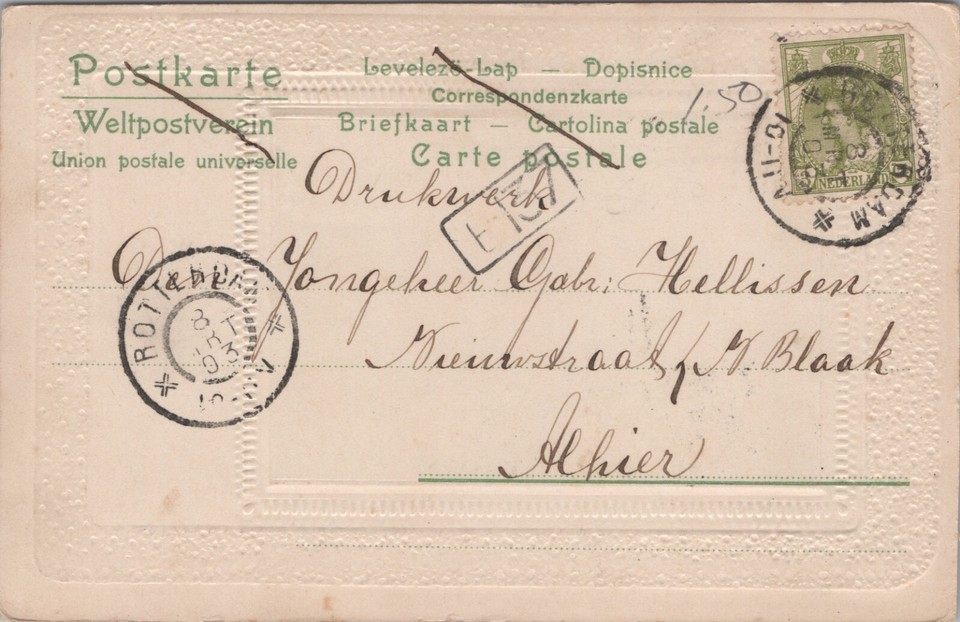 Postkarte
Levelezö-Lap — Dopisnice
Correspondenzkarte
Weltpostverein
Briefkaart — Cartolina postale
Union postale universelle
Carte postale
1.50
NEDERLAND
Drukwerk
137
Jongeheer Gabr: Hellissen
Nieuwstraat / N. Blaak
Alhier
ROTTERDAM